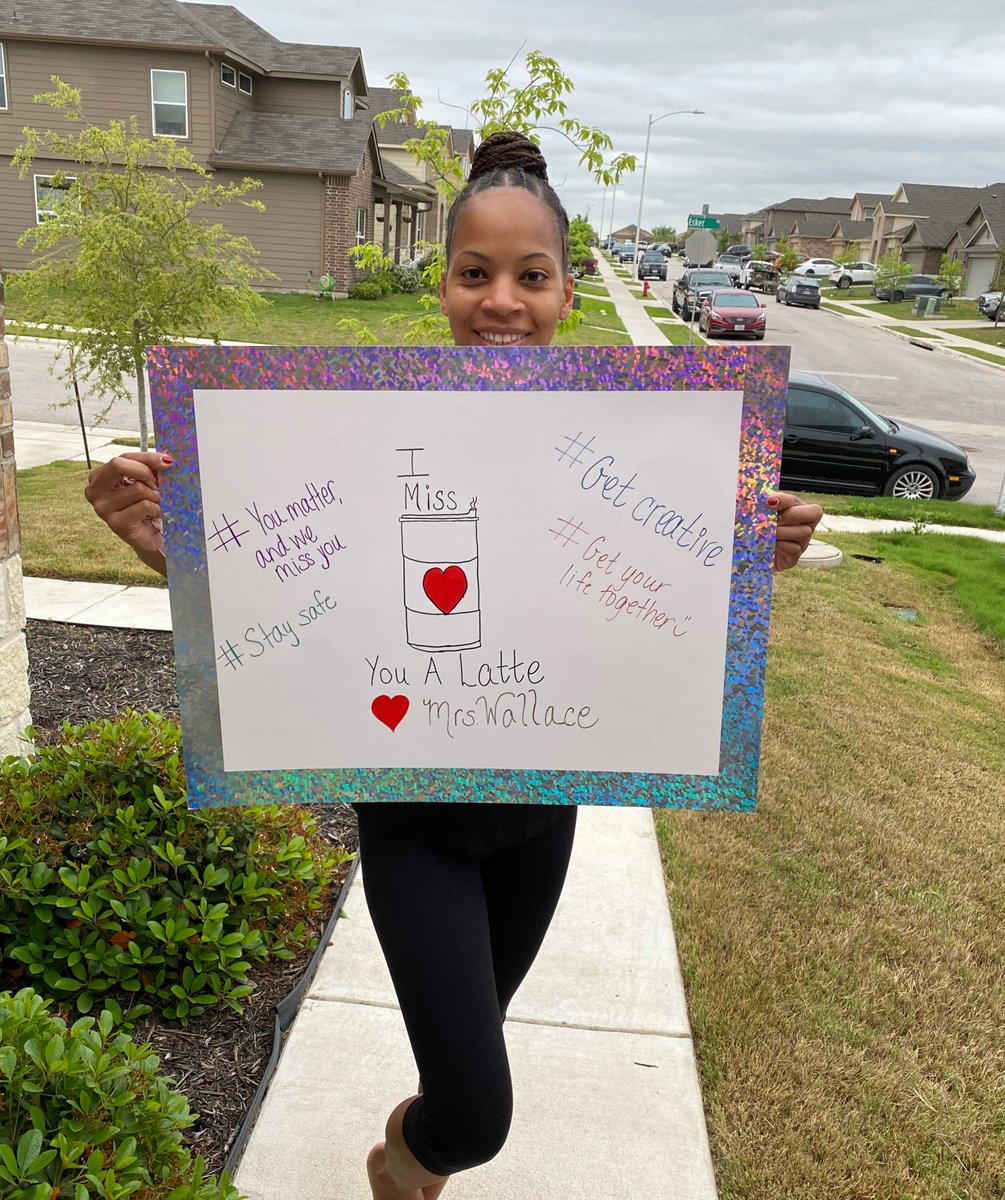 Esker
I
Miss
You A Latte
Mrs. Wallace
# You matter,
and we
miss you
# Stay safe
# Get creative
# Get your
life together"